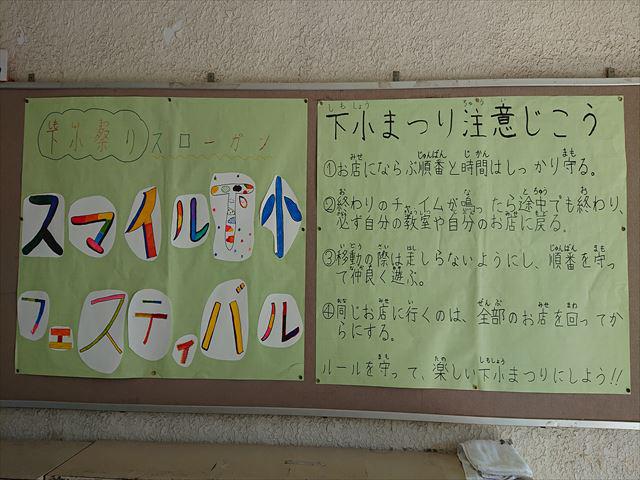 下小祭りスローガン
スマイル下小
フェスティバル
下小まつり注意じこう
①お店にならぶ順番と時間はしっかり守る。
②終わりのチャイムが鳴ったら途中でも終わり、
必ず自分の教室や自分のお店に戻る。
③移動の際は走しらないようにし、順番を守っ
て仲良く遊ぶ。
④同じお店に行くのは、全部のお店を回ってか
らにする。
ルールを守って、楽しい下小まつりにしよう!!